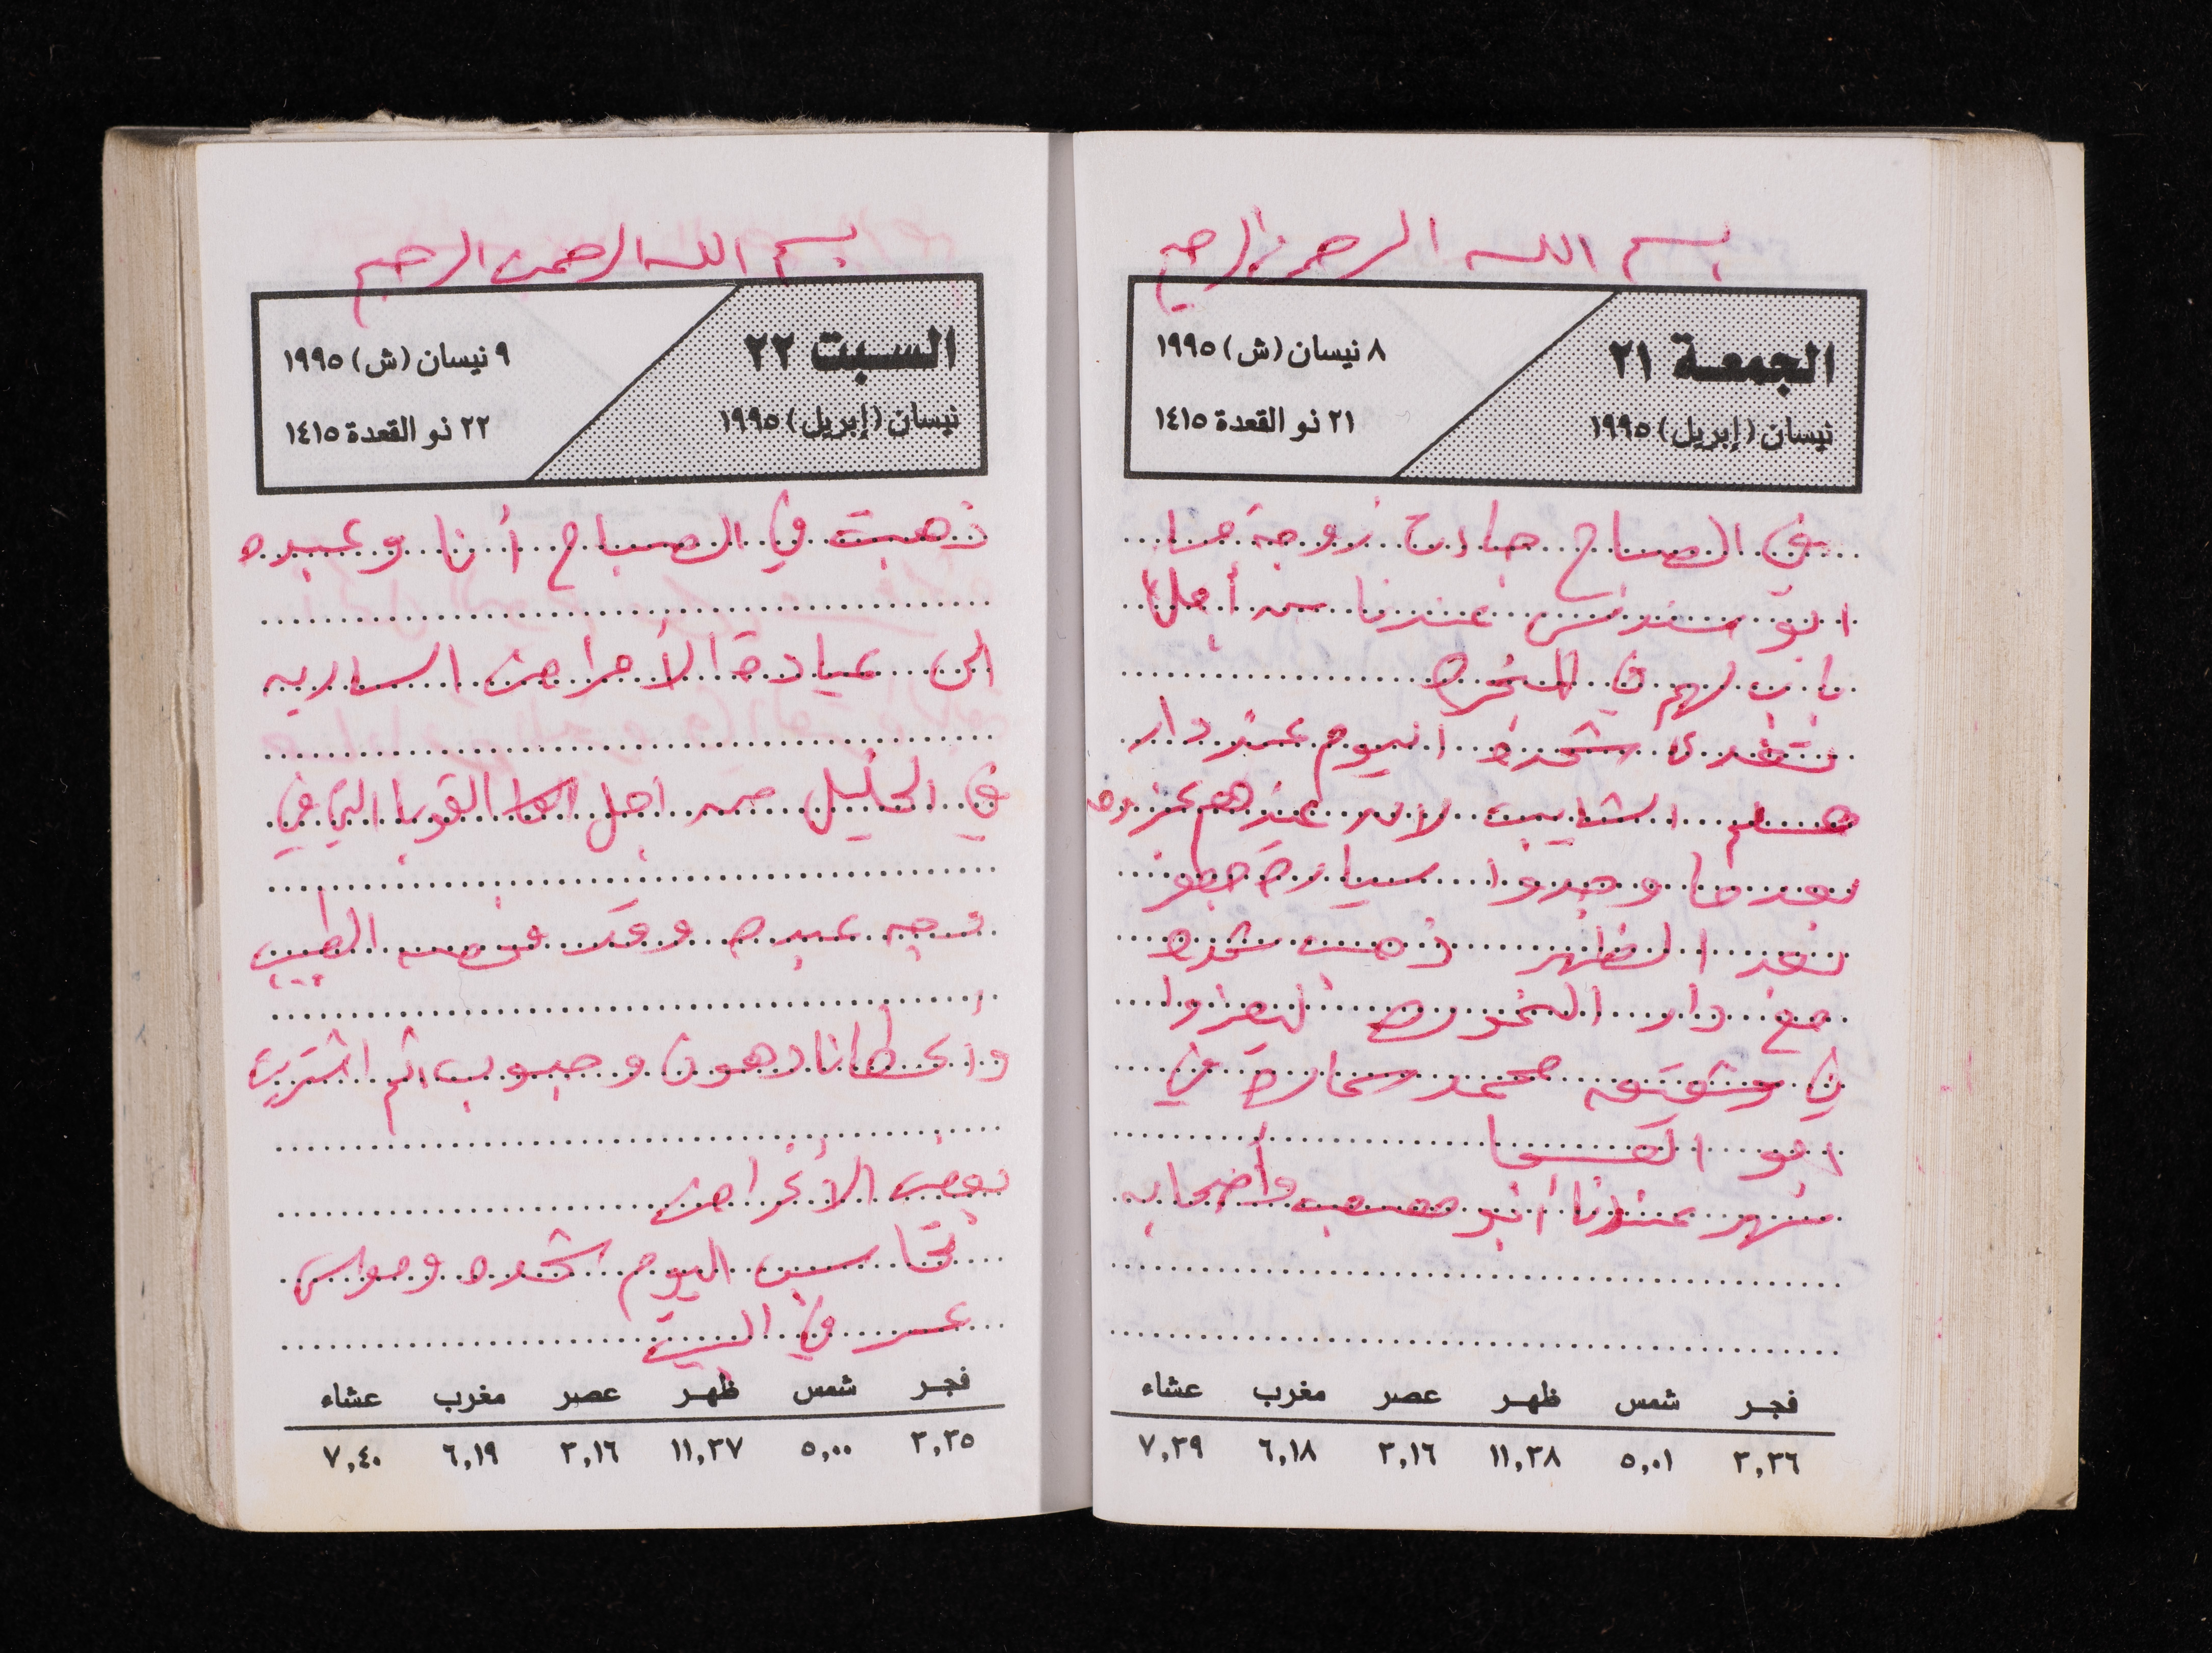 بسم الله الرحمن الرحيم
الجمعة ٢١
نيسان (إبريل) ١٩٩٥
٨ نيسان (ش) ١٩٩٥
٢١ ذو القعدة ١٤١٥
في الصباح جاءت زوجة حنا
ابو سندس عندنا من أجل
باب لهم في المنجرة
تغدى شحده اليوم عند دار
الشايب لانه عندهم
بعدما وجدوا سيارة
بعد الظهر ذهب شحده
مع دار ليعزوا
في محمد في
ابو
سهر عندنا أبو مصعب وأصحابه
فجر شمس ظهر عصر مغرب عشاء
٣,٣٦ ٥,٠١ ١١,٣٨ ٣,١٦ ٦,١٨ ٧,٣٩
بسم الله الرحمن الرحيم
السبت ٢٢
نيسان (إبريل) ١٩٩٥
٩ نيسان (ش) ١٩٩٥
٢٢ ذو القعدة ١٤١٥
ذهبت في الصباح أنا وعبده
الى عيادة الأمراض الساريه
في الخليل من اجل القوبا التي في
وجه عبده وقد فحصه الطبيب
وأعطانا دهون وحبوب ثم اشتريت
بعض الأغراض
تحاسب اليوم شحده
عمر في البيت
فجر شمس ظهر عصر مغرب عشاء
٣,٣٥ ٥,٠٠ ١١,٣٧ ٣,١٦ ٦,١٩ ٧,٤٠